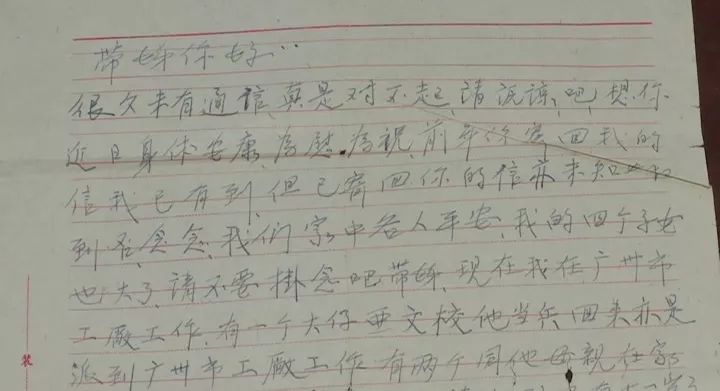 带姊你好:
很久未有通信,真是对不起,请谅谅吧,想你
近日身体安康,为慰为祝,前年你寄回我的
信我已有到,但已寄回你的信亦未知
到否,念念,我们家中各人平安,我的四个子女
也大了,请不要掛念吧带姊,现在我在广州市
工廠工作,有一个大仔 文校他当兵回来亦是
派到广州市工廠工作 有两个同他母親在家
装